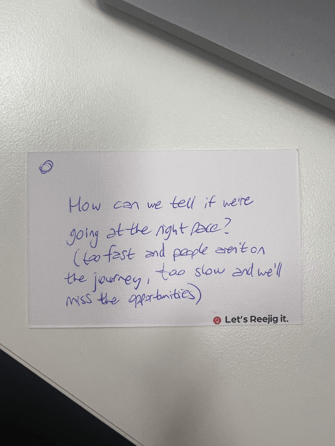 How can we tell if we're
going at the right pace?
(too fast and people aren't on
the journey, too slow and we'll
miss the opportunities)
Let's Reejig it.